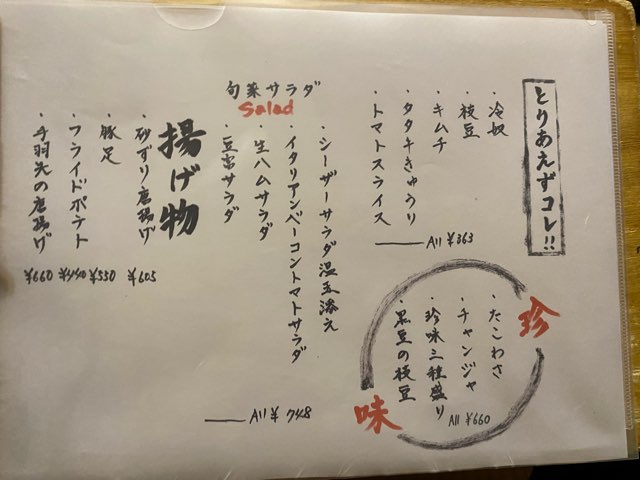 とりあえずコレ!!
・冷奴
・枝豆
・キムチ
・タタキきゅうり
・トマトスライス
All ¥363
珍味
・たこわさ
・チャンジャ
・珍味三種盛り
・黒豆の枝豆
All ¥660
旬菜サラダ
Salad
・シーザーサラダ温玉添え
・イタリアンベーコントマトサラダ
・生ハムサラダ
・豆富サラダ
All ¥748
揚げ物
・砂ずり唐揚げ ¥605
・豚足 ¥550
・フライドポテト ¥440
・手羽先の唐揚げ ¥660